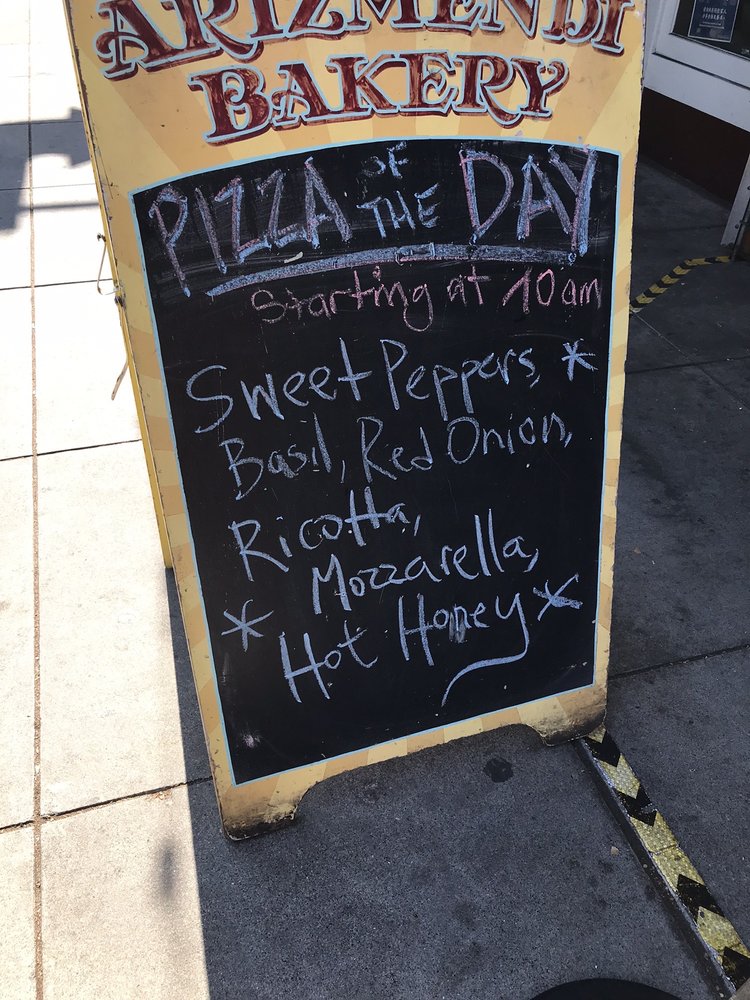 ARIZMENDI
BAKERY
PIZZA OF THE DAY
Starting at 10am
Sweet Peppers, *
Basil, Red Onion,
Ricotta,
Mozzarella,
* Hot Honey *